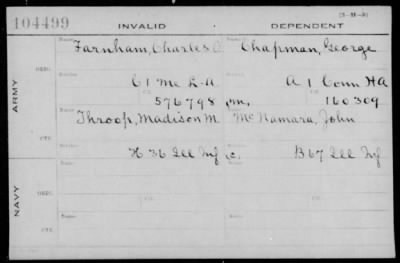 104499 INVALID DEPENDENT (3-98-b)
Farnham, Charles O. Chapman, George
ORIG.
C 1 Me L-A A 1 Conn HA
576798 m, 160309
ARMY
Throop, Madison M McNamara, John
CTF.
H 36 Ill Inf (c. B 67 Ill Inf
ORIG.
NAVY
CTF.